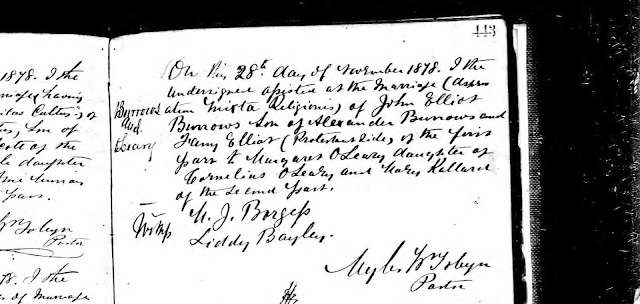 1878. I the
Marriage (having
Cultus) of
Son of
of the
daughter
Pastor
78. I the
of Marriage
443
On this 28th day of November 1878. I the
undersigned assisted at the marriage (dispen
ation Mixta Religionis) of John Elliot
Burrows and Leary
Burrows Son of Alexander Burrows and
Fanny Elliot (Protestant Side) of the first
part & Margaret O'Leary daughter of
Cornelius O'Leary and Mary
of the second part.
M. J. Borgess
Liddy Bayley.
Myles Wm Tobyn
Pastor